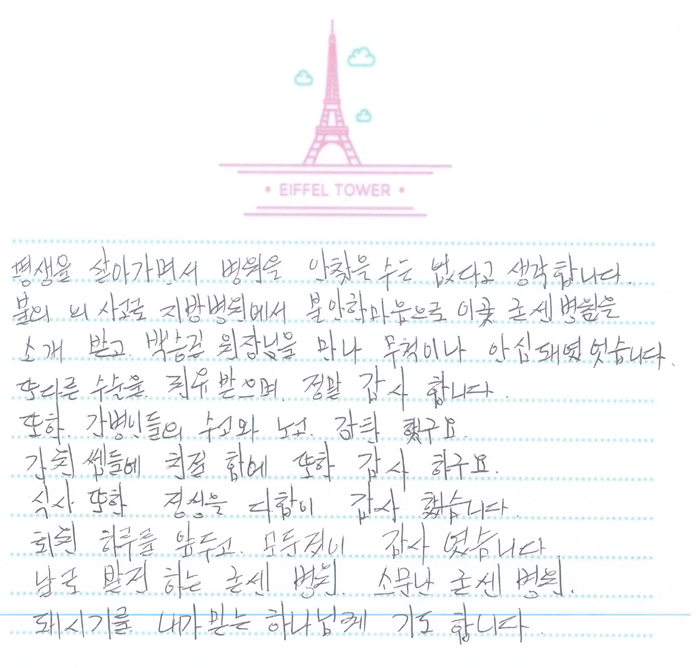 • EIFFEL TOWER •
평생을 살아가면서 병원을 안찾을 수는 없다고 생각합니다.
불의 의 사고로 지방병원에서 불안한마음으로 이곳 굳센병원을
소개 받고. 백승길 원장님을 만나 무척이나 안심돼였 엇습니다.
또다른 수술을. 치유 받으며. 정말 감사 합니다.
또한 간병인들의 수고와 노고. 감탄 했구요.
간친 쌤들에 친절 함에 또한 감사 하구요.
식사 또한 정성을 다함이 감사 했습니다.
퇴원 하루를 앞두고. 모두것이 감사 였습니다
날로 발전 하는 굳센 병원. 소문난 굳센 병원.
돼시기를 내가 믿는 하나님께 기도 합니다.